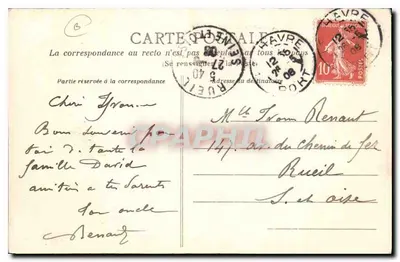 CARTE POSTALE
La correspondance au recto n'est pas
(Se renseigner
Partie réservée à la correspondance
Adresse du destinataire
RUEIL
5 40
27
SEINE ET
HAVRE
12
08
PORT
HAVRE
12
08
10
POSTES
B
Cher Yvonne
Bon souvenir pour
toi & toute la
famille David
amitiés à tes parents
Ton oncle
Renault
Mlle Yvonne Renault
147, av. du Chemin de fer
Rueil
S. et Oise